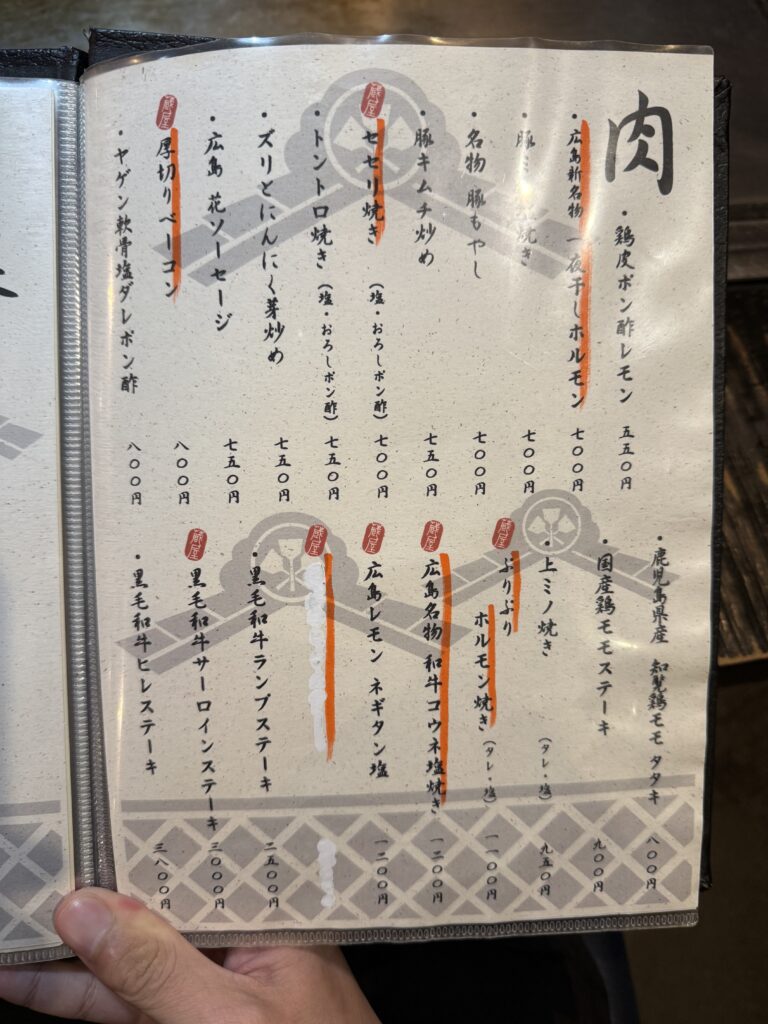 肉
・鶏皮ポン酢レモン 五五〇円
・広島新名物 一夜干しホルモン 七〇〇円
・豚ミ 焼き 七〇〇円
・名物 豚もやし 七〇〇円
・豚キムチ炒め 七五〇円
蔵屋 セセリ焼き (塩・おろしポン酢) 七〇〇円
・トントロ焼き (塩・おろしポン酢) 七五〇円
・ズリとにんにく芽炒め 七五〇円
・広島 花ソーセージ 七五〇円
蔵屋 厚切りベーコン 八〇〇円
・ヤゲン軟骨塩ダレポン酢 八〇〇円
・鹿児島県産 知覧鶏モモ タタキ 八〇〇円
・国産鶏モモステーキ 九〇〇円
・上ミノ焼き (タレ・塩) 九五〇円
蔵屋 ぷりぷり
ホルモン焼き (タレ・塩) 一一〇〇円
蔵屋 広島名物 和牛コウネ塩焼き 一二〇〇円
蔵屋 広島レモン ネギタン塩 一二〇〇円
蔵屋
・黒毛和牛ランプステーキ 二五〇〇円
蔵屋 黒毛和牛サーロインステーキ 三〇〇〇円
・黒毛和牛ヒレステーキ 三八〇〇円